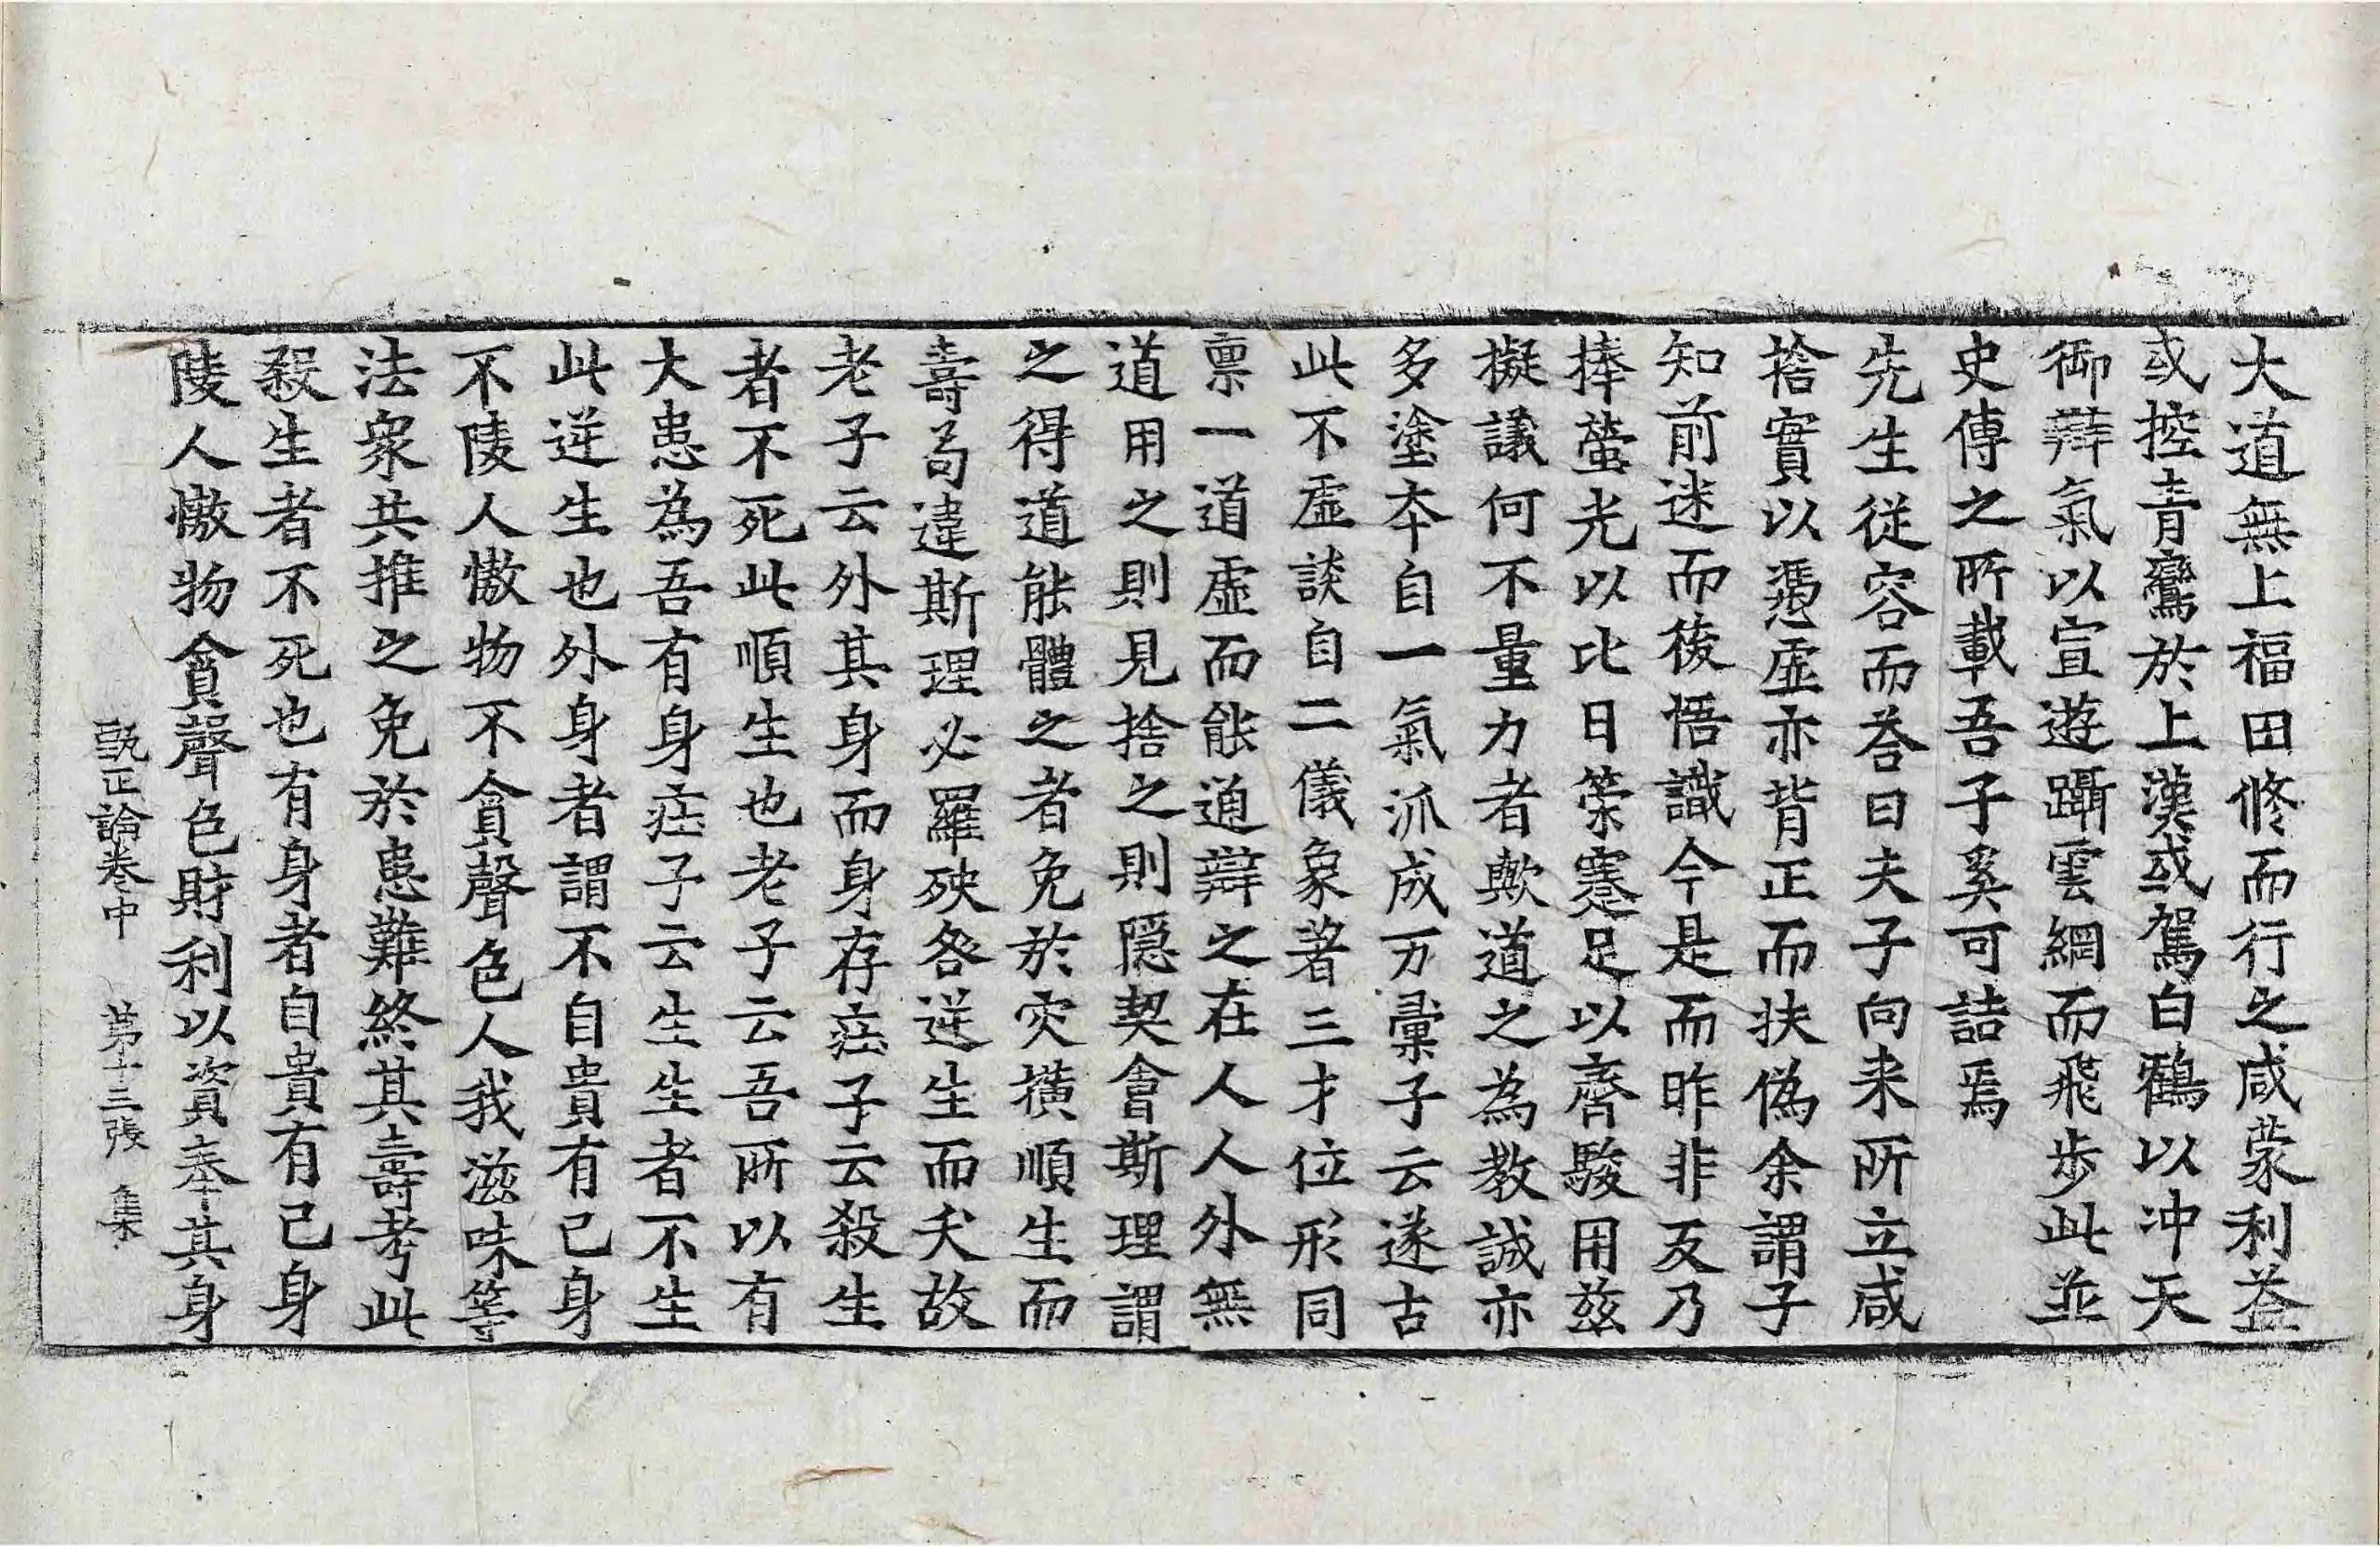 大道無上福田修而行之咸蒙利益
或控青鸞於上漢或駕白鶴以沖天
御辯氣以宣遊躡雲綱而飛步此並
史傳之所載吾子奚可詰焉
先生從容而荅曰夫子向来所立咸
捨實以憑虛亦背正而扶偽余謂子
知前迷而後悟識今是而昨非反乃
捧螢光以比日策蹇足以齊駿用兹
擬議何不量力者歟道之為教誠亦
多塗夲自一氣派成万彙子云遂古
此不虛談自二儀象著三才位形同
禀一道虛而能通辯之在人人外無
道用之則見捨之則隱契會斯理謂
之得道能體之者免於灾橫順生而
壽苟違斯理必羅殃咎逆生而夭故
老子云外其身而身存莊子云殺生
者不死此順生也老子云吾所以有
大患為吾有身莊子云生生者不生
此逆生也外身者謂不自貴有己身
不陵人慠物不貪聲色人我滋味等
法衆共推之免於患難終其壽考此
殺生者不死也有身者自貴有己身
陵人慠物貪聲色財利以資奉其身
甄正論卷中　第十三張　集